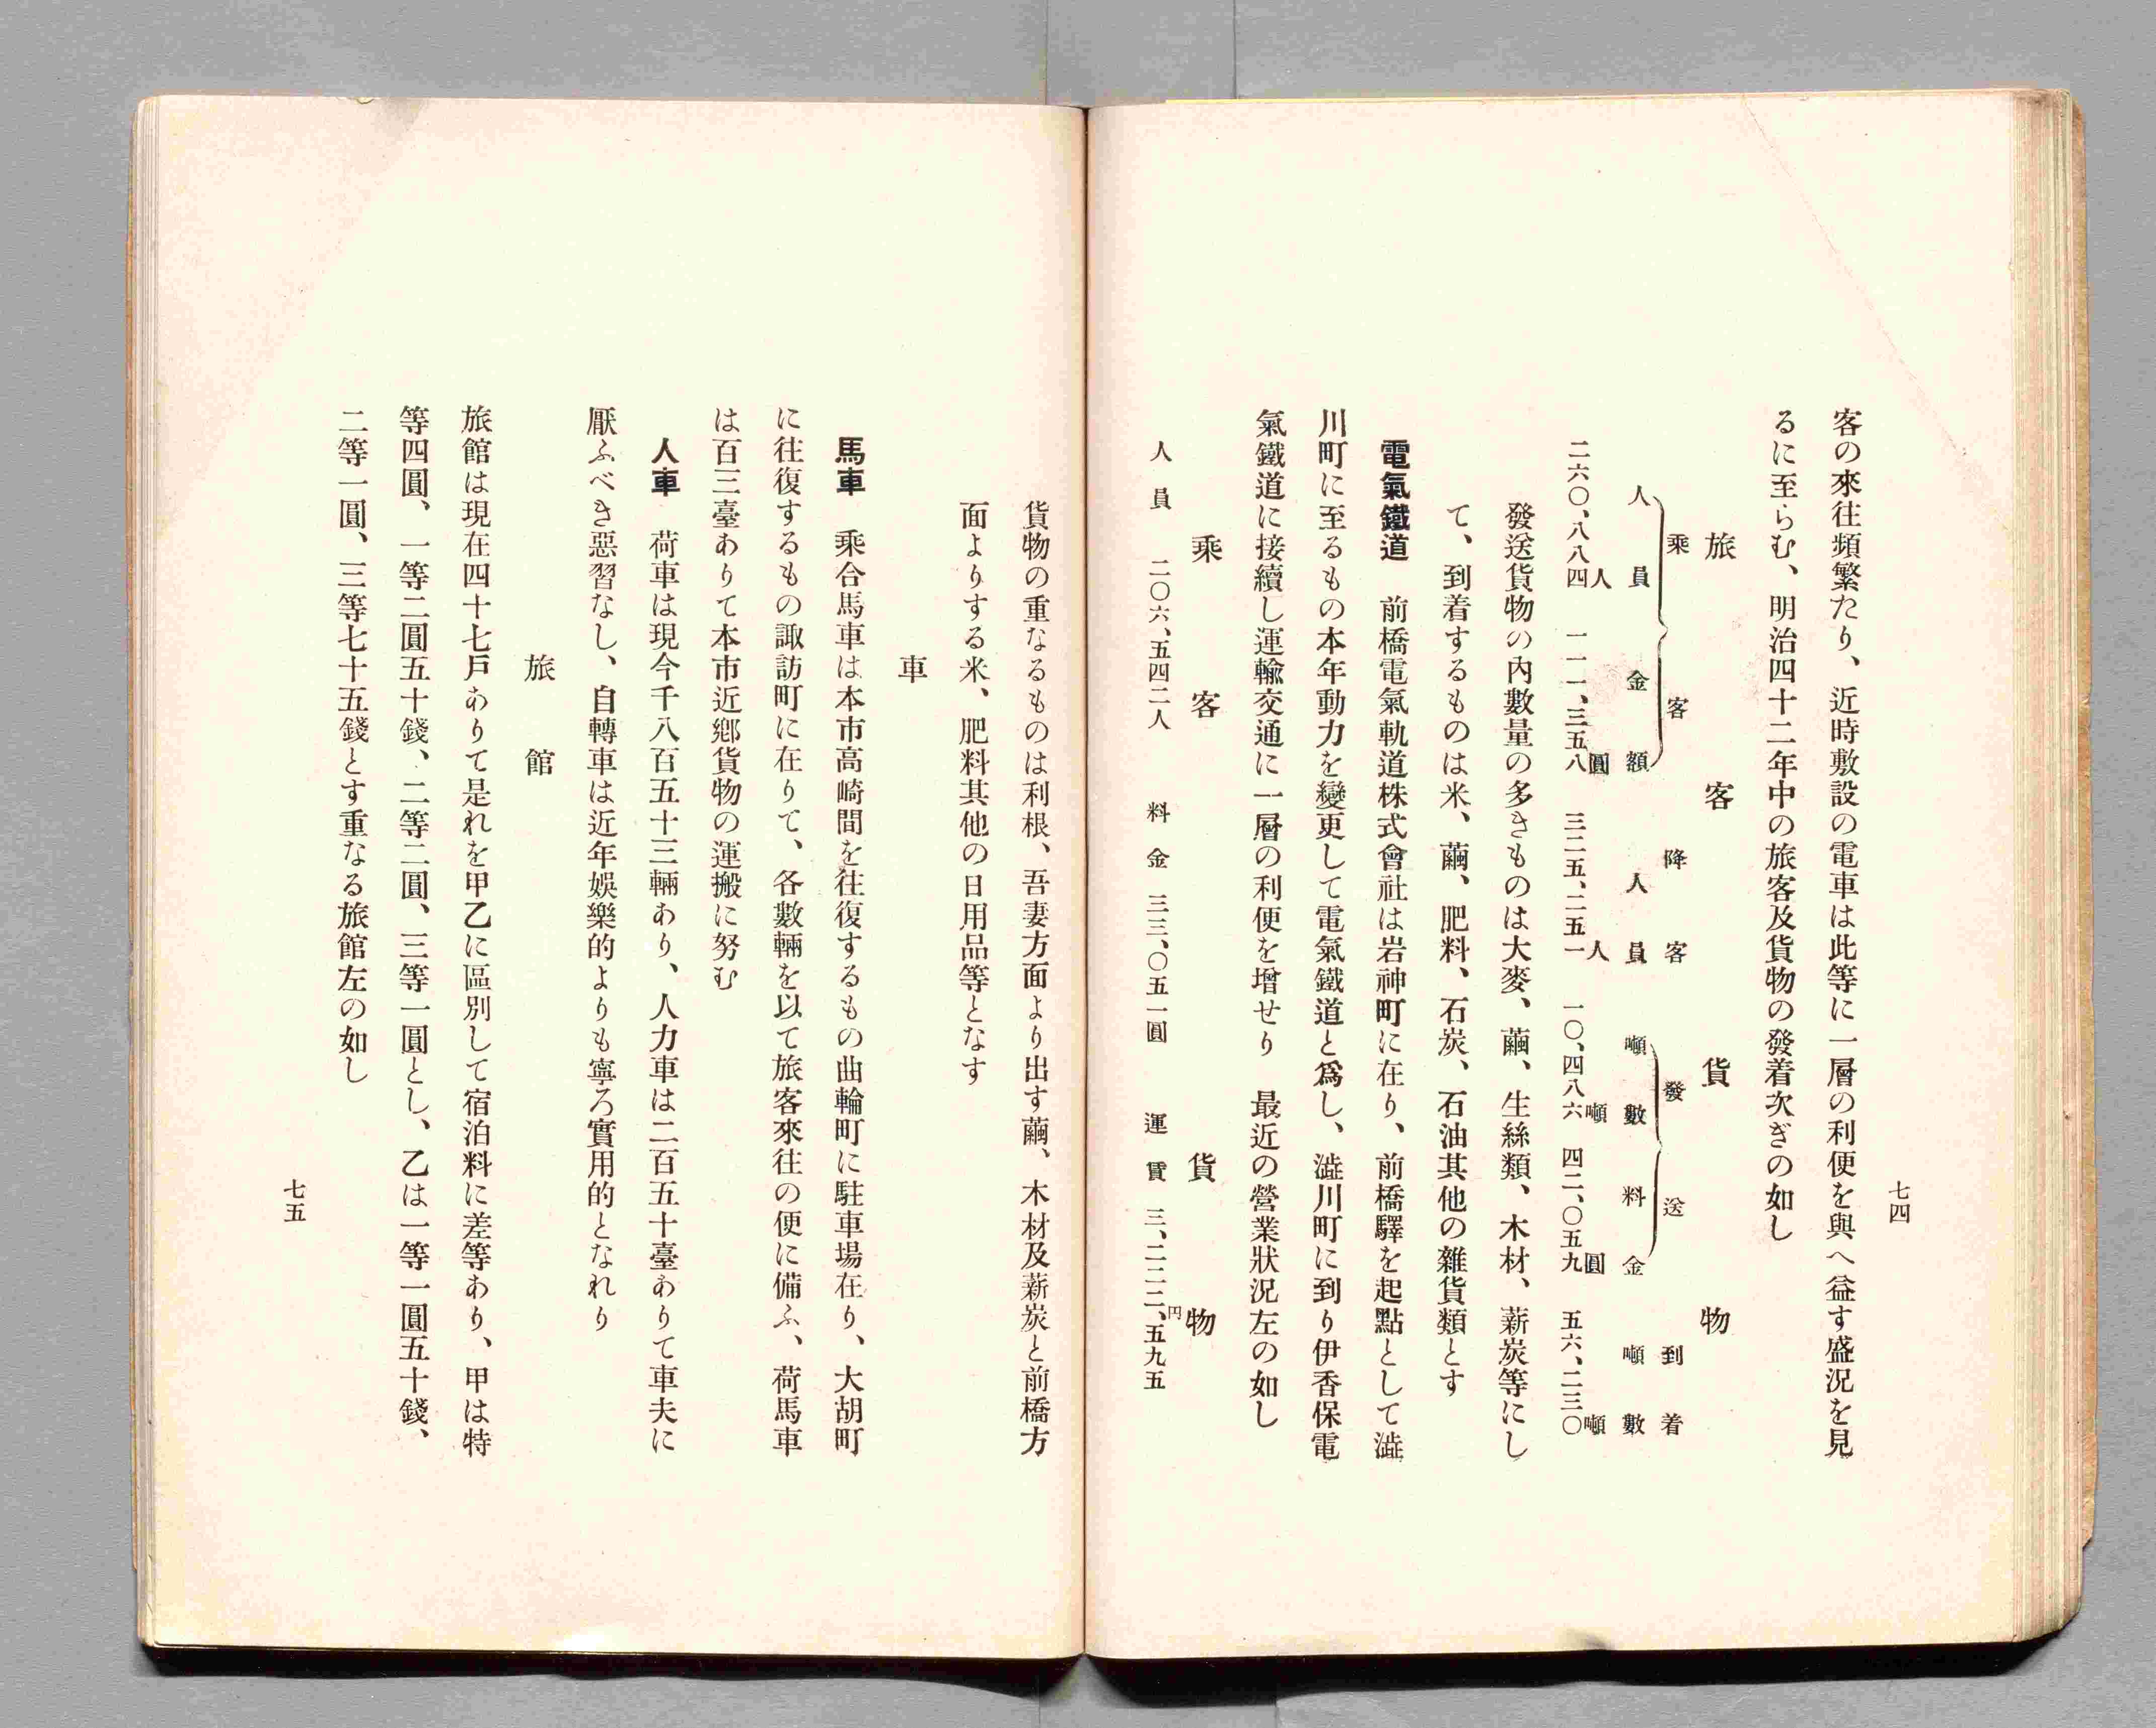 七四
客の來往頻繁たり、近時敷設の電車は此等に一層の利便を與へ益す盛況を見
るに至らむ、明治四十二年中の旅客及貨物の發着次ぎの如し
旅客 貨物
乘客 降客 發送 到着
人員 金額 人員 噸數 料金 噸數
二六〇、八八四人 一一一、三五八圓 三二五、二五一人 一〇、四八六噸 四二、〇五九圓 五六、二三〇噸
發送貨物の內數量の多きものは大麥、繭、生絲類、木材、薪炭等にし
て、到着するものは米、繭、肥料、石炭、石油其他の雜貨類とす
電氣鐵道 前橋電氣軌道株式會社は岩神町に在り、前橋驛を起點として澁
川町に至るもの本年動力を變更して電氣鐵道と爲し、澁川町に到り伊香保電
氣鐵道に接續し運輸交通に一層の利便を增せり 最近の營業狀況左の如し
乘客 貨物
人員 二〇六、五四二人 料金 三三、〇五一圓 運賃 三、二二二、円五九五
貨物の重なるものは利根、吾妻方面より出す繭、木材及薪炭と前橋方
面よりする米、肥料其他の日用品等となす
車
馬車 乘合馬車は本市高崎間を往復するもの曲輪町に駐車場在り、大胡町
に往復するもの諏訪町に在りて、各數輛を以て旅客來往の便に備ふ、荷馬車
は百三臺ありて本市近鄕貨物の運搬に努む
人車 荷車は現今千八百五十三輛あり、人力車は二百五十臺ありて車夫に
厭ふべき惡習なし、自轉車は近年娛樂的よりも寧ろ實用的となれり
旅館
旅館は現在四十七戶ありて是れを甲乙に區別して宿泊料に差等あり、甲は特
等四圓、一等二圓五十錢、二等二圓、三等一圓とし、乙は一等一圓五十錢、
二等一圓、三等七十五錢とす重なる旅館左の如し
七五